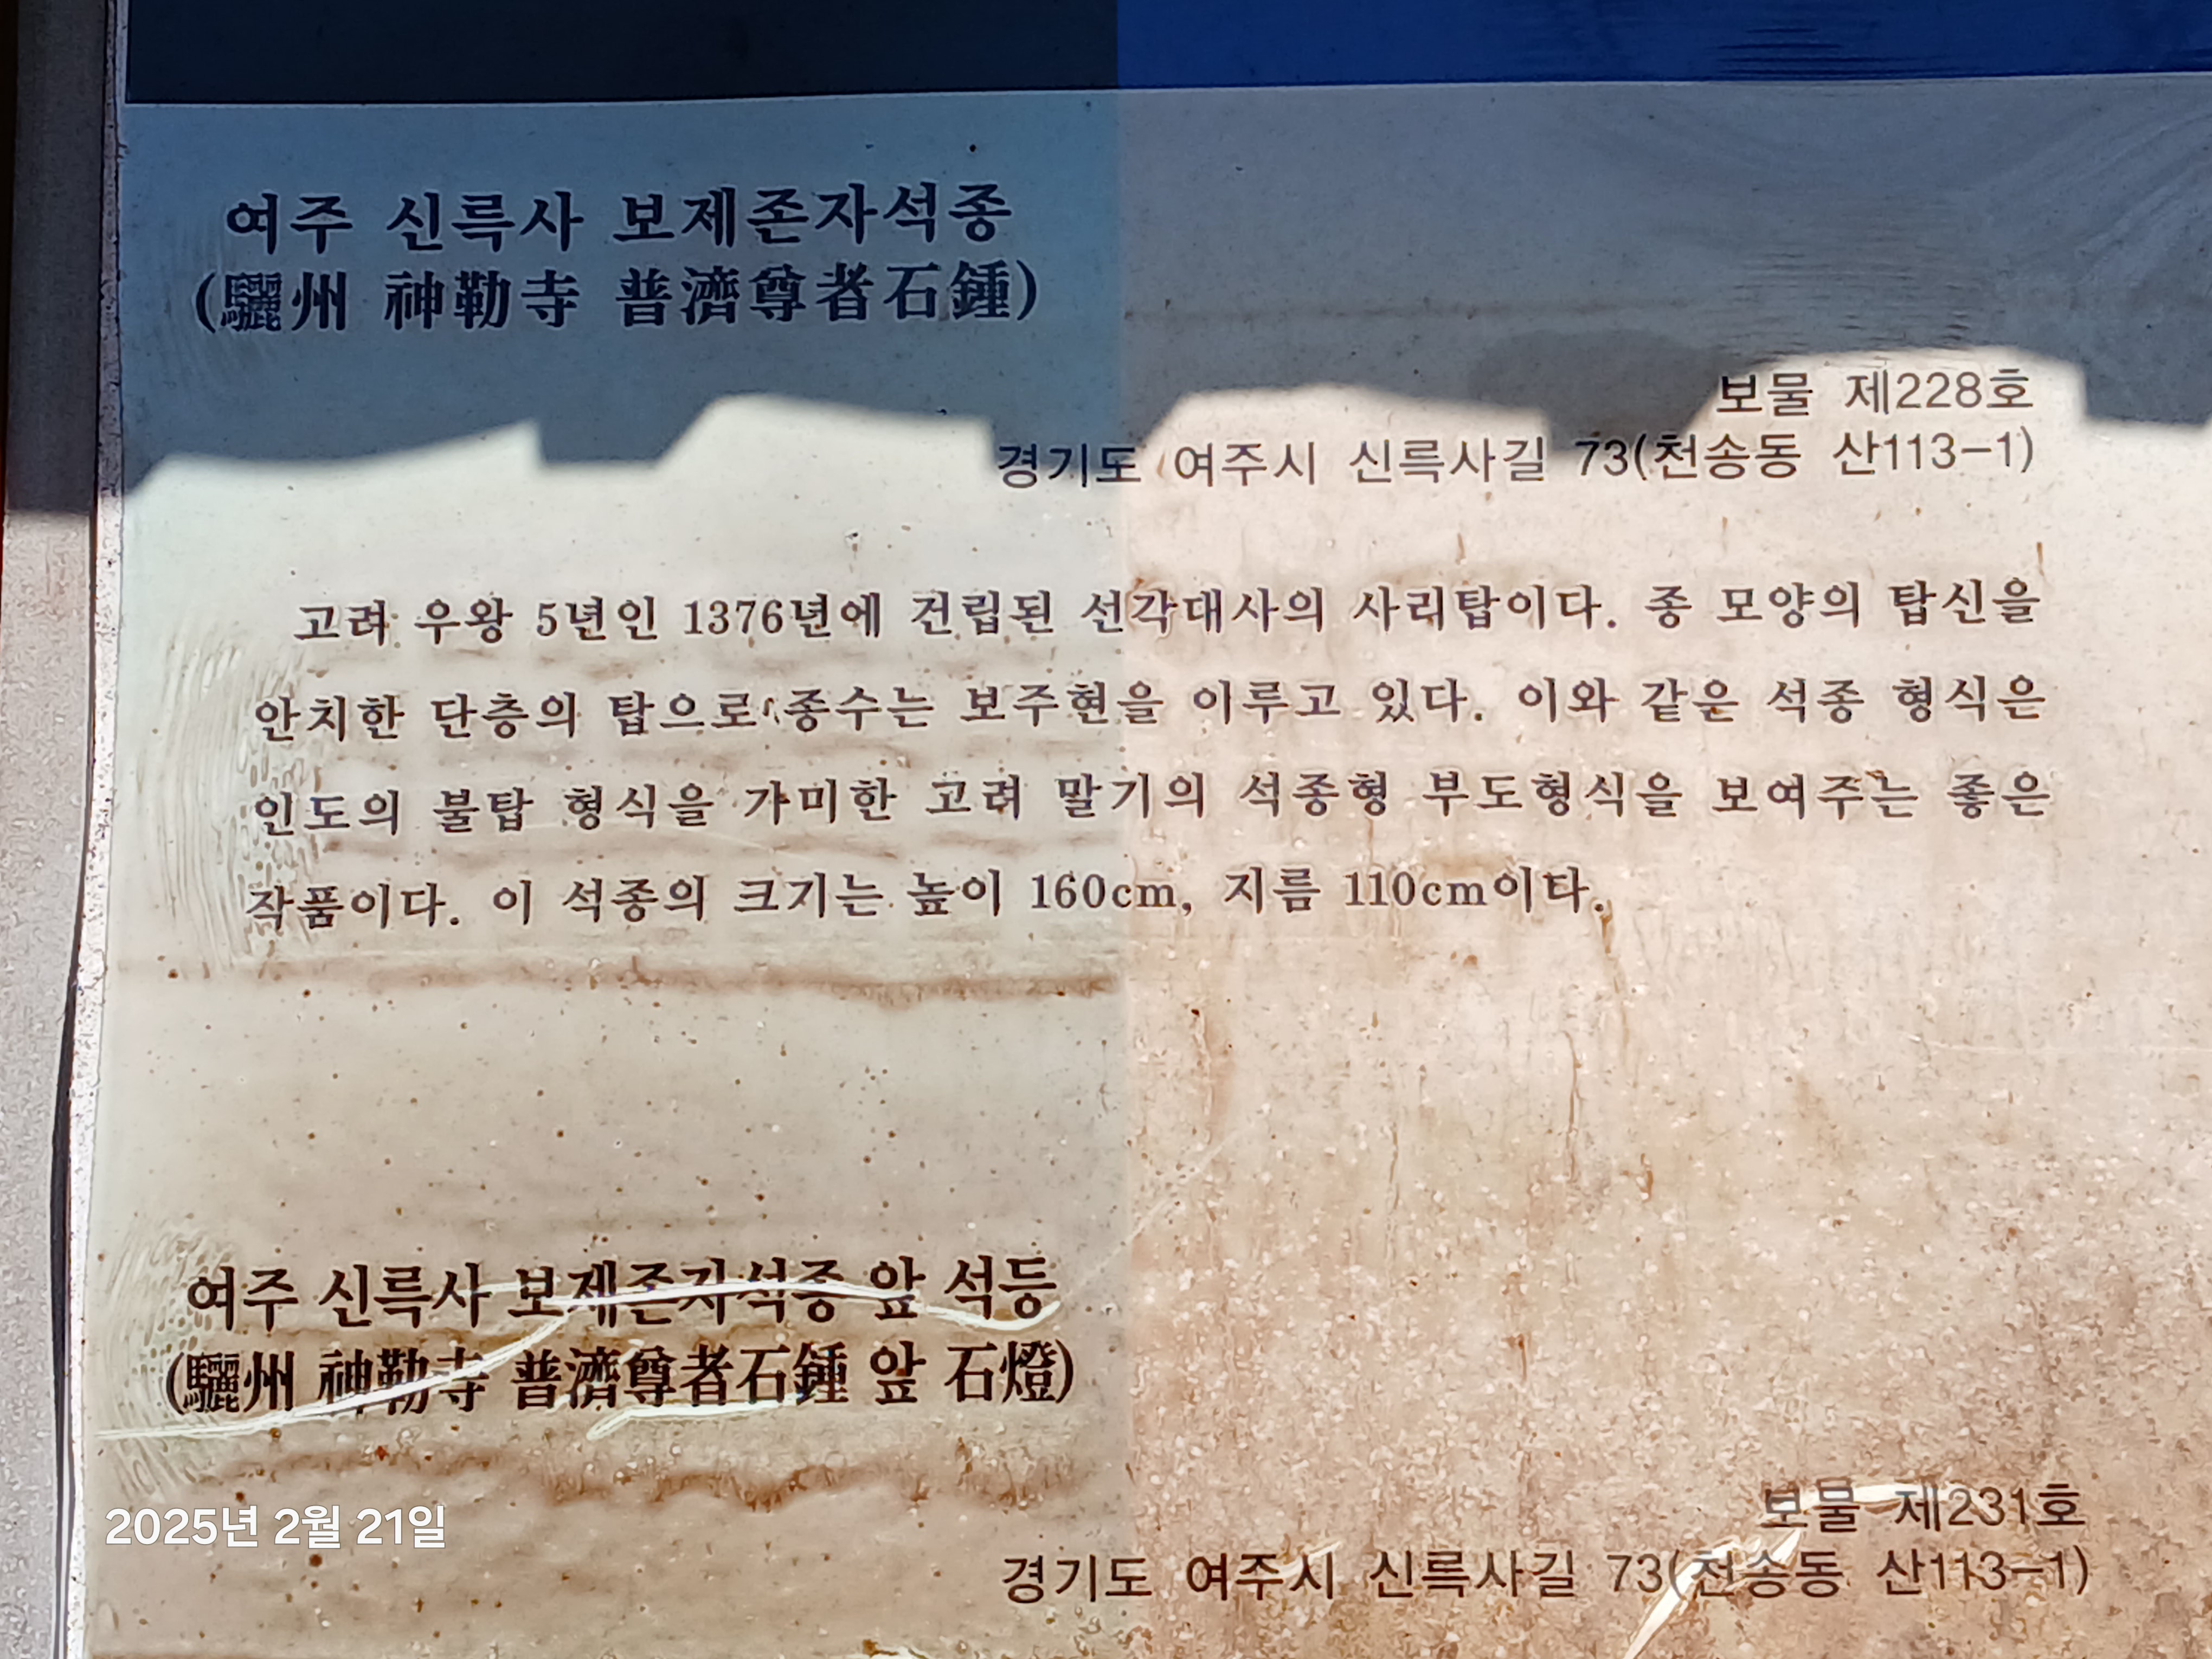 여주 신륵사 보제존자석종
(驪州 神勒寺 普濟尊者石鍾)
보물 제228호
경기도 여주시 신륵사길 73(천송동 산113-1)
고려 우왕 5년인 1376년에 건립된 선각대사의 사리탑이다. 종 모양의 탑신을
안치한 단층의 탑으로 종수는 보주현을 이루고 있다. 이와 같은 석종 형식은
인도의 불탑 형식을 가미한 고려 말기의 석종형 부도형식을 보여주는 좋은
작품이다. 이 석종의 크기는 높이 160cm, 지름 110cm이다.
여주 신륵사 보제존자석종 앞 석등
(驪州 神勒寺 普濟尊者石鍾 앞 石燈)
보물 제231호
경기도 여주시 신륵사길 73(천송동 산113-1)
2025년 2월 21일